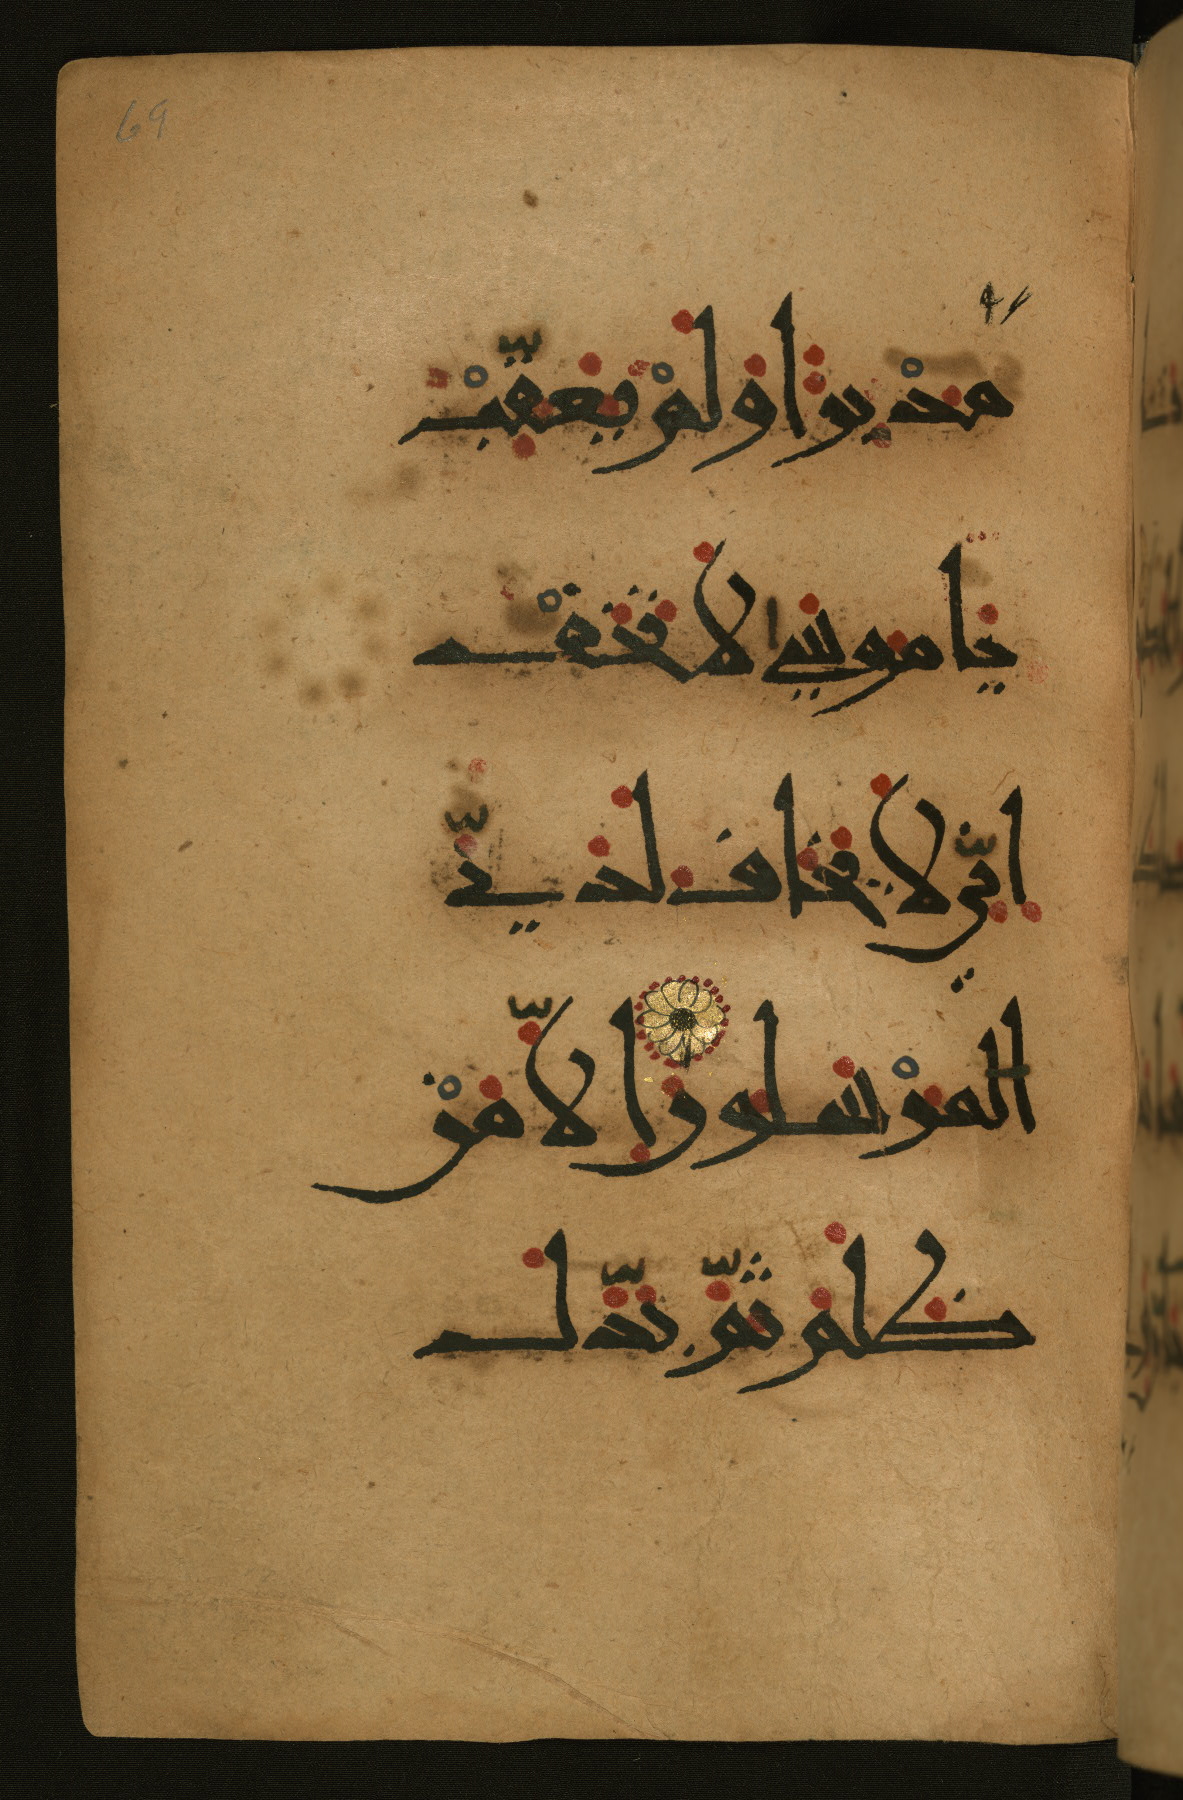 69
مدبرا ولم يعقب
ياموسى لا تخف
انى لا يخاف لدى
المرسلون الا من
ظلم ثم بدل